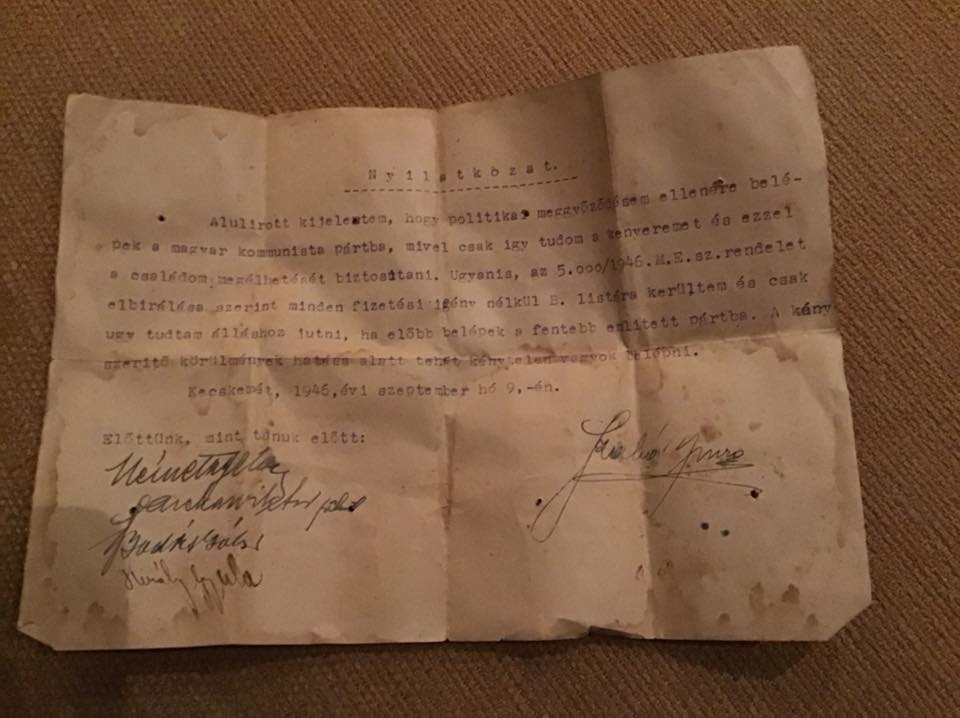 Nyilatkozat.
Alulirott kijelentem, hogy politikai meggyőződésem ellenére belé-
pek a magyar kommunista pártba, mivel csak igy tudom a kenyeremet és ezzel
a családom megélhetését biztositani. Ugyanis, az 5.000/1946.M.E.sz.rendelet
elbirálása szerint minden fizetési igény nélkül B. listára kerültem és csak
ugy tudtam álláshoz jutni, ha előbb belépek a fentebb emlitett pártba. A kény
szeritő körülmények hatása alatt tehát kénytelen vagyok belépni.
Kecskemét, 1946,évi szeptember hó 9,-én.
Előttünk, mint tanuk előtt:
Szabó
Király Gyula